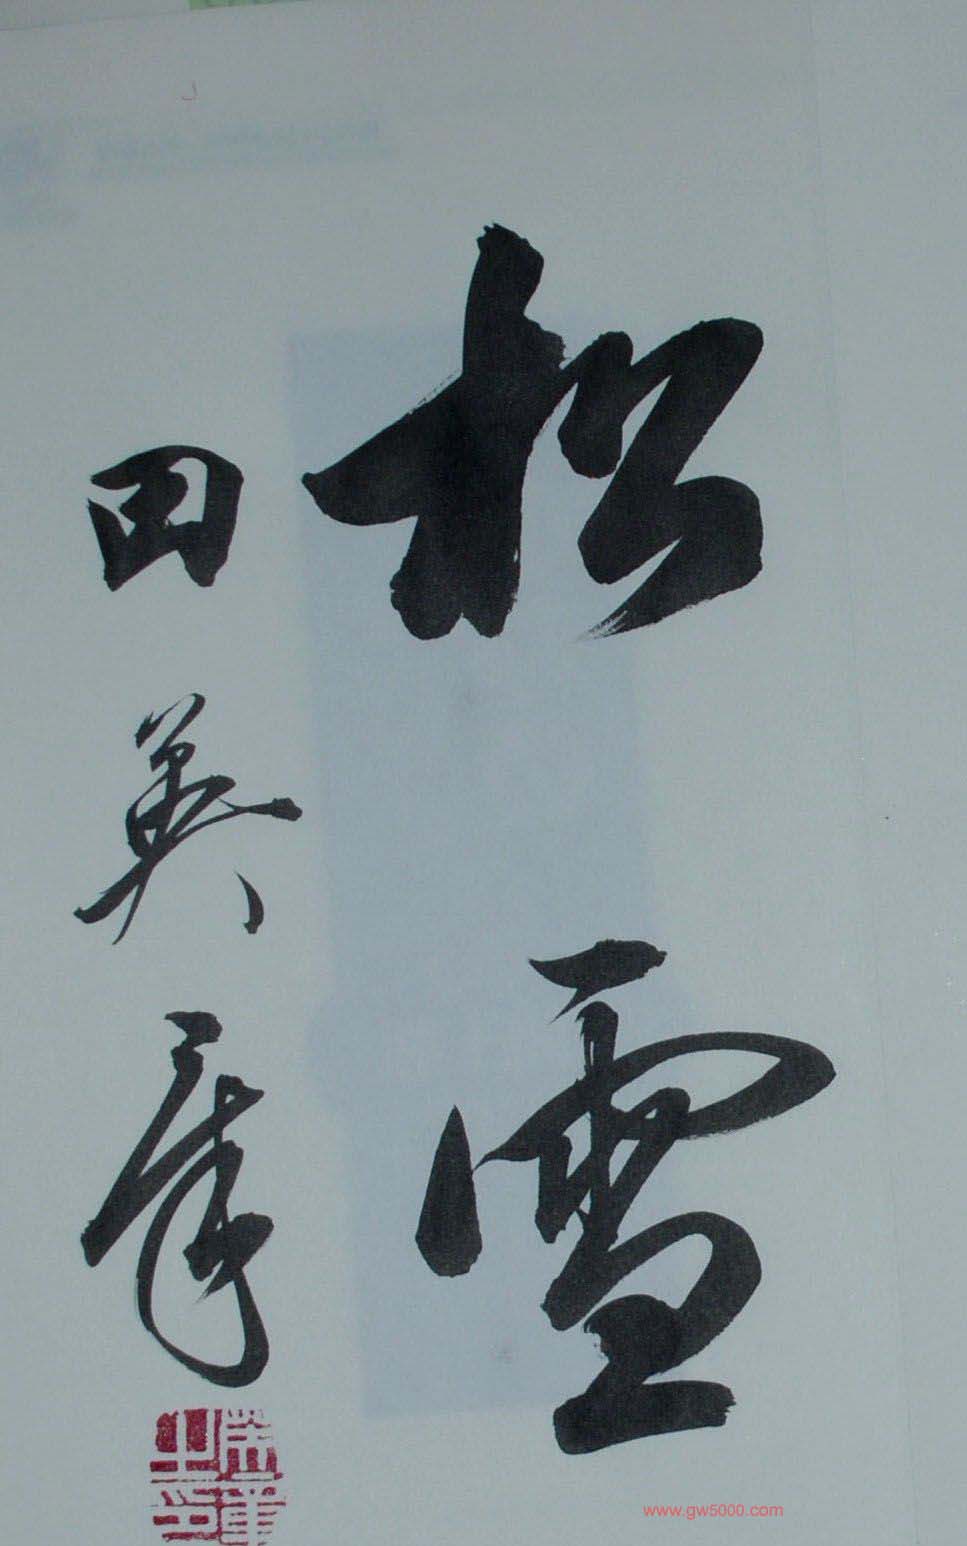 松雪
田英章
www.gw5000.com